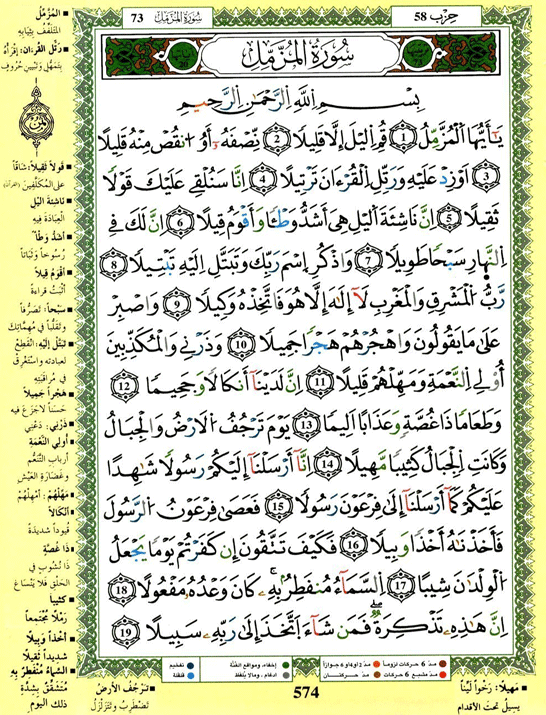 73
سُورَةُ المُزَّمِّل
حِزب 58
سُورَةُ المُزَّمِّل
بِسْمِ اللَّهِ الرَّحْمَٰنِ الرَّحِيمِ
يَٰٓأَيُّهَا اَلْمُزَّمِّلُ 1 قُمِ اِليْلَ إِلَّا قَلِيلًا 2 نِّصْفَهُۥٓ أَوُ اُنقُصْ مِنْهُ قَلِيلًا
3 اَوْ زِدْ عَلَيْهِ وَرَتِّلِ اِلْقُرْءَانَ تَرْتِيلًا 4 اِنَّا سَنُلْقِے عَلَيْكَ قَوْلًا
ثَقِيلًا 5 اِنَّ نَاشِئَةَ اَليْلِ هِيَ أَشَدُّ وَطْـٔٗا وَأَقْوَمُ قِيلًا 6 اِنَّ لَكَ فِے
اِلنَّهارِ سَبْحٗا طَوِيلًا 7 وَاذْكُرِ اِسْمَ رَبِّكَ وَتَبَتَّلِ اِلَيْهِ تَبْتِيلًا 8
رَّبُّ اُلْمَشْرِقِ وَالْمَغْرِبِ لَآ إِلَٰهَ إِلَّا هُوَ فَاتَّخِذْهُ وَكِيلًا 9 وَاصْبِرْ
عَلَىٰ مَا يَقُولُونَ وَاهْجُرْهُمْ هَجْرٗا جَمِيلًا 10 وَذَرْنِے وَالْمُكَذِّبِينَ
أُوْلِے اِلنَّعْمَةِ وَمَهِّلْهُمْ قَلِيلًا 11 اِنَّ لَدَيْنَآ أَنكَالٗا وَجَحِيمٗا 12
وَطَعَامٗا ذَا غُصَّةٍ وَعَذَابًا اَلِيمٗا 13 يَوْمَ تَرْجُفُ اُلَارْضُ وَالْجِبَالُ
وَكَانَتِ اِلْجِبَالُ كَثِيبٗا مَّهِيلًا 14 اِنَّآ أَرْسَلْنَآ إِلَيْكُمْ رَسُولٗا شَٰهِدًا
عَلَيْكُمْ كَمَآ أَرْسَلْنَآ إِلَىٰ فِرْعَوْنَ رَسُولٗا 15 فَعَصَىٰ فِرْعَوْنُ اُلرَّسُولَ
فَأَخَذْنَٰهُ أَخْذٗا وَبِيلٗا 16 فَكَيْفَ تَتَّقُونَ إِن كَفَرْتُمْ يَوْمٗا يَجْعَلُ
اُلْوِلْدَٰنَ شِيبًا 17 اِلسَّمَآءُ مُنفَطِرُۢ بِهِۦ كَانَ وَعْدُهُۥ مَفْعُولًا 18
اِنَّ هَٰذِهِۦ تَذْكِرَةٞ فَمَن شَآءَ اَتَّخَذَ إِلَىٰ رَبِّهِۦ سَبِيلًا 19
المُزَّمِّلُ
المتلفِّف بثيابه
رَتِّل القُرءان: اِقْرَأْهُ
بِتَمَهُّل وتبيين حُروف
قَوْلاً ثَقِيلاً: شاقّاً
على المكلّفين (القرآن)
ناشِئَة اليْل
العِبَادَة فِيهِ
أشدُّ وَطْئاً
رُسُوخاً وَثَبَاتاً
أقْوَمُ قِيلاً
أثبَتُ قراءة
سَبْحاً: تَصَرُّفاً
وتقلُّباً في مهمّاتِك
تَبَتَّل إلَيْه: انْقَطِعْ
لعبادته واسْتَغْرِقْ
في مُراقَبَتِه
هَجْراً جَمِيلاً
حَسَناً لا جَزَعَ فيه
ذَرْنِي: دَعْنِي
أولِي النَّعْمَةِ
أرباب التَّنَعُّم
وغَضَارَة العَيْش
مَهِّلْهُمْ: أمْهِلْهُمْ
أنْكالاً
قُيوداً شديدة
ذا غُصَّةٍ
ذا نُشُوبٍ في
الحَلْقِ فلا يَنْسَاغ
كَثِيباً
رَمْلاً مُجْتَمِعاً
أخْذاً وَبِيلاً
شديداً ثَقِيلاً
السَّماءُ مُنْفَطِرٌ بِه
مُتَشَقِّقٌ بِشِدَّةِ
ذلك اليوم
مَد 6 حركات لزوماً
مَد 2 أو 4 أو 6 جوازاً
إخفاء، ومواقع الغُنَّة
تفخيم
مَد مشبع 6 حركات
مد حركتان
ادغام، ومالا يُلفظ
قلقلة
مَهِيلاً: رَخْواً لَيِّناً
يسيل تحت الأقدام
574
تَرْجُفُ الأرْضُ
تَضْطَرِبُ وتَتَزَلْزَلُ